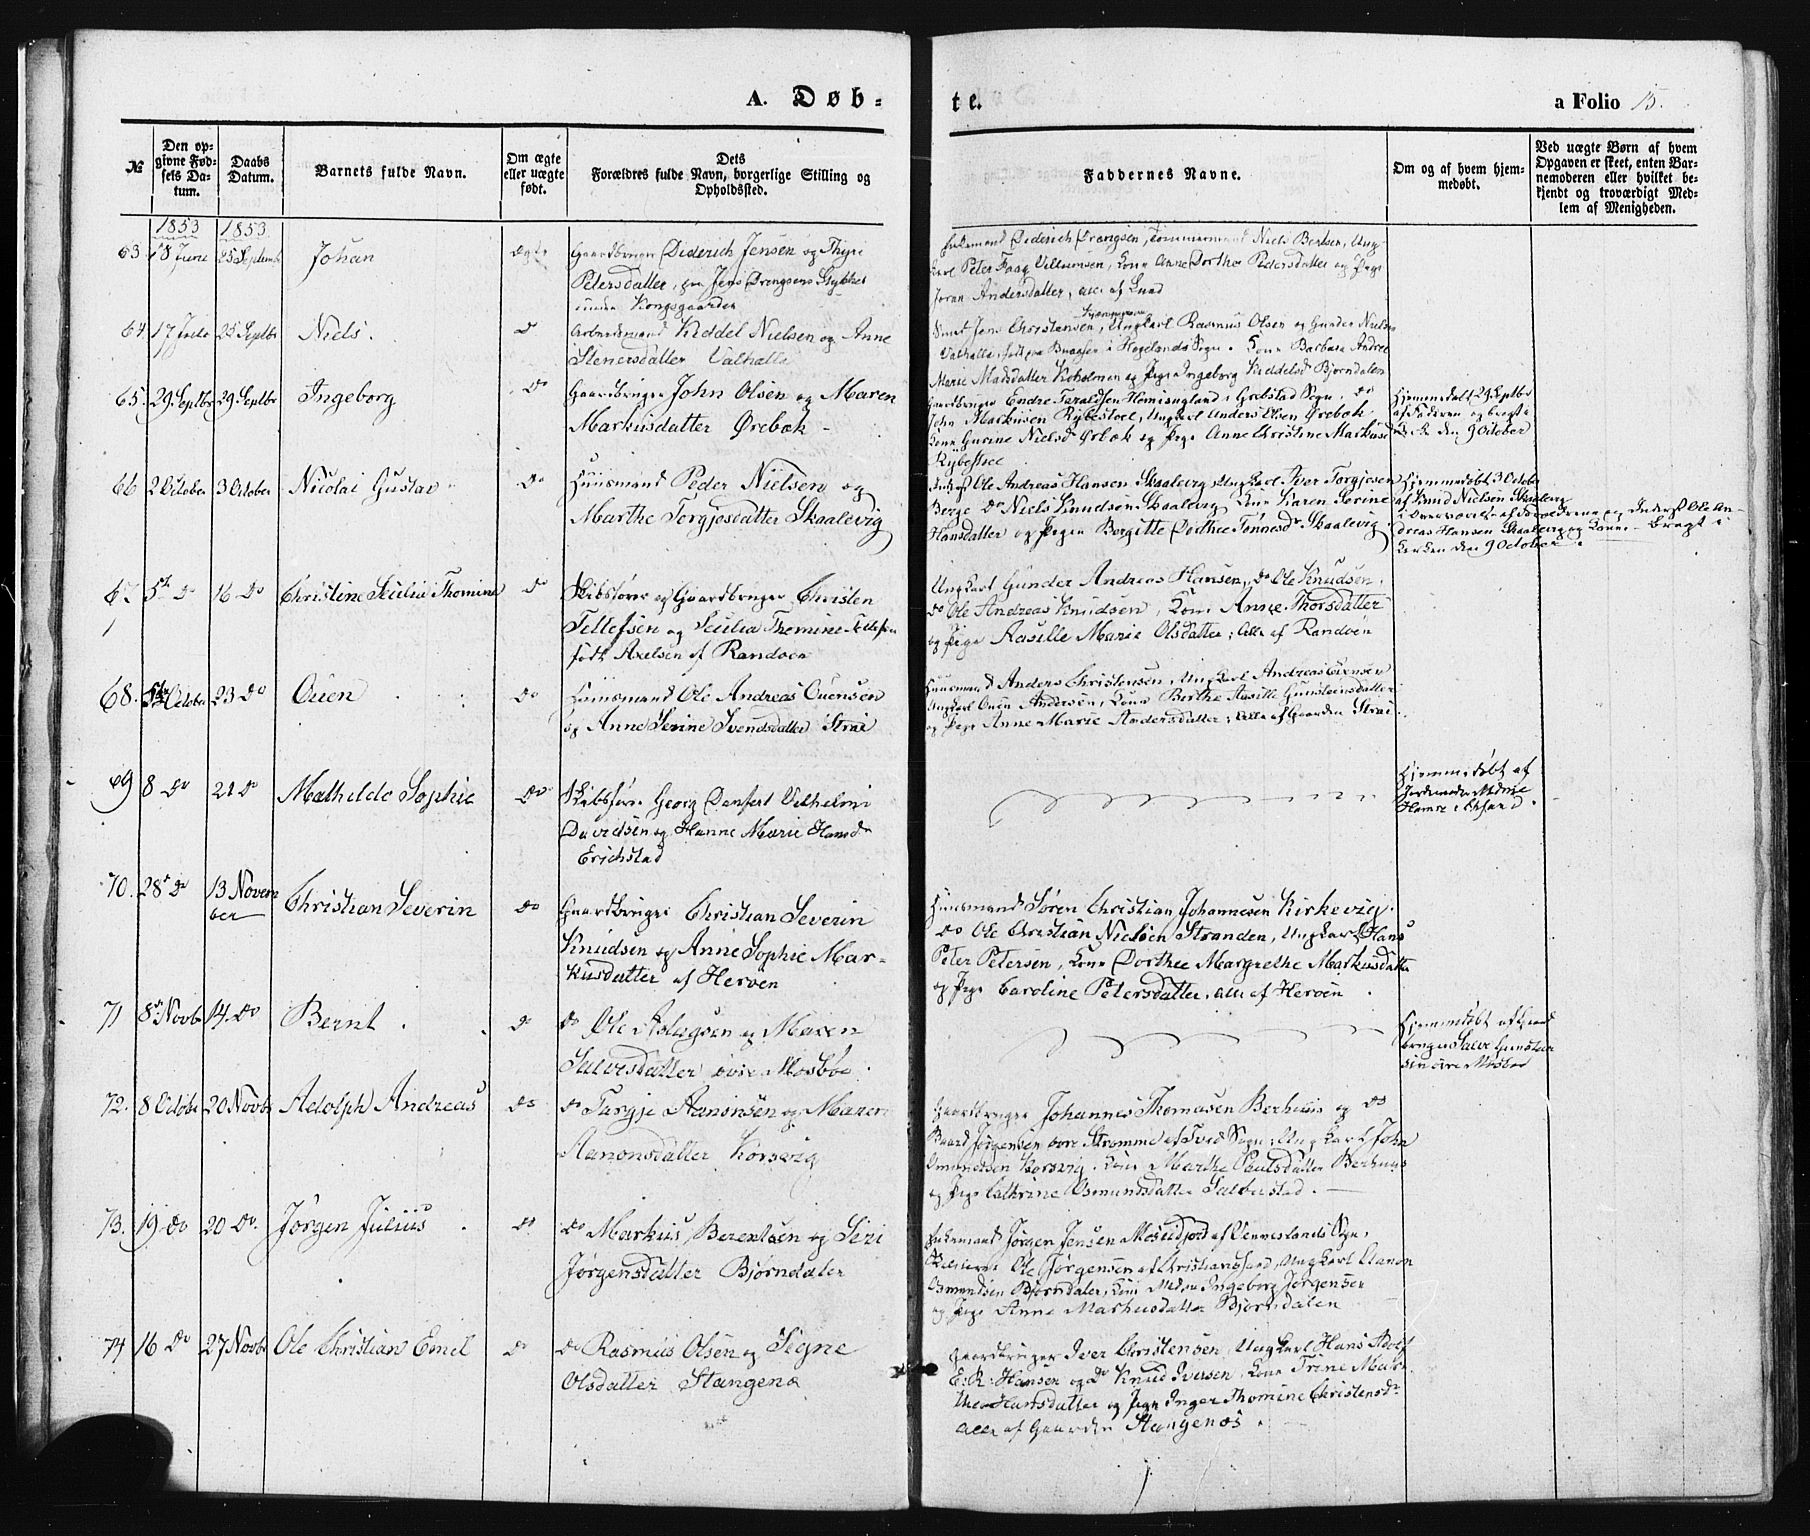 A. Døb-
te.
a Folio 15.
№
Den op-
givne Fød-
sels Da-
tum.
Daabs
Datum.
Barnets fulde Navn.
Om ægte
eller uægte
født.
Dets
Forældres fulde Navn, borgerlige Stilling og
Opholdssted.
Faddernes Navne.
Om og af hvem hjem-
medøbt.
Ved uægte Børn af hvem
Opgaven er skeet, enten Bar-
nemoderen eller hvilket be-
kjendt og troværdigt Med-
lem af Menigheden.
1853 1853
63 18 Juni 25 Septembr Johan ægte
Gaardbruger Diderich Jensen og Thyri
Petersdatter, paa Jens Drengsens Stykket
under Kongsgaarden
Enkemand Diderich Drengsen, Tømmermand Niels Bentsen, Ung-
karl Peter Faag Villumsen, Kone Anne Dorthe Pedersdatter og Pige
Joran Andersdatter, alle af Lund
64 17 25 Septbr Niels. Do
Arbeidsmand Kiddel Nielsen og Anne
Stenersdatter Valhalla
Jens Christensen, Ungkarl Rasmus Olsen og Gunder Nielsen
Valhalla, i Høgelands Sogn. Kone Barbara Andrea
Marie Madsdatter Kokolmen og Pige Ingeborg Kiddelsd Bjørndalen
65. 29 Septbr 29 Septbr Ingeborg Do
Gaardbruger John Olsen og Maren
Markusdatter Ørebæk
Gaardbruger Endre Taraldsen i Grebstad Sogn. Do
John Markusen Rybestoel, Ungkarl Anders Olsen Ørebæk
Kone Gurine Nielsd Ørbæk og Pige Anne Christine Markusd
Rybestoel
Hjemmedøbt 29 Septbr
af Faderen og bragt i
K. den 9 October
66 2 October 3 October Nicolai Gustav Do
Huusmand Peder Nielsen og
Marthe Torgjesdatter Skaalevig
Inderst Ole Andreas Hansen Skaalevig Ungkarl Iver Torgjesen
Berge Do Niels Knudsen Skaalevig Kone Karen Serine
Hansdatter og Pigen Bergitte Dorthea Tønnesdr Skaalevig
Hjemmedøbt 3 October
af Knud Nielsen Skaalevig
i Overværelse af Forældrene og Inderst Ole An-
dreas Hansen Skaalevig og Kone. bragt i
Kirken den 9 October.
67 5te Do 16 Do Christine Secilia Thomine Do
Skibsfører og Gaardbruger Christen
Tellefsen og Secilia Thomine Tellefsen
født Axelsen af Randøen
Ungkarl Gunder Andreas Hansen, Do Ole Knudsen,
Do Ole Andreas Knudsen, Kone Anne Thorsdatter
og Pige Aasille Marie Olsdatter; Alle af Randøen
68. October 23 Do Ouen Do
Huusmand Ole Andreas Ouensen
og Anne Serine Svendsdatter Strai
Huusmand Anders Christensen, Ungkarl Andreas Ouensen
Ungkarl Ouen Andersen, Kone Berthe Aasille Gunsteinsdatter
og Pige Anne Marie Andersdatter; Alle af Gaarden Strai.
69 8 Do 21 Do Mathilde Sophie Do
Skibsfører Georg Danfert Vilhelmi
Davidsen og Hanne Marie Hansdr
Erichstad
Hjemmedøbt af
Jordemoder
70. 28 Do 13 Novem
ber
Christian Severin Do
Gaardbruger Christian Severin
Knudsen og Anne Sophie Mar-
kusdatter af Herøen
Huusmand Søren Christian Johannesen Kirkevig.
Do Ole Christian Nielsen Stranden, Ungkarl Hans
Peter Petersen, Kone Dorthee Margrethe Markusdatter
og Pige Caroline Petersdatter, alle af Herøen
71 8 Novbr 14. Do Bernt Do
Do Ole Aslagsen og Maren
Salvesdatter øvre Mosbøe.
Hjemmedøbt af Gaard
bruger Salve Gunsteen
sen øvre Mosbøe
72. 8 October 20 Novbr Adolph Andreas Do
Do Targje Aanonsen og Maren
Aanonsdatter Korsvig
Gaardbruger Johannes Thomasen Berhuus og Do
Baard Jørgensen Strømme af Tved Sogn; Ungkarl John
Omundsen Korsvig, Kone Marthe Poulsdatter Berhuus
og Pige Cathrine Osmundsdatter
73. 19 Do 20 Do. Jørgen Julius Do
Do Markus Berentsen og Siri
Jørgensdatter Bjørndalen
Enkemand Jørgen Jensen Moseidjord af Vennesland Sogn,
Ole Jørgensen af Christiansand, Ungkarl Aanon
Osmundsen Bjørndalen, Kone Ingeborg Jørgensen
og Pige Anne Markusdatter Bjørndalen
74 16 Do 27 Novbr Ole Christian Emil Do
Do Rasmus Olsen og Signe
Olsdatter Stangenæs
Gaardbruger Iver Christensen, Ungkarl Hans Adolf
E. R. Hansen og Do Knud Iversen, Kone Trine Mar-
the Hansdatter og Pige Inger Thomine Christensdr
alle af Gaarden Stangenæs.